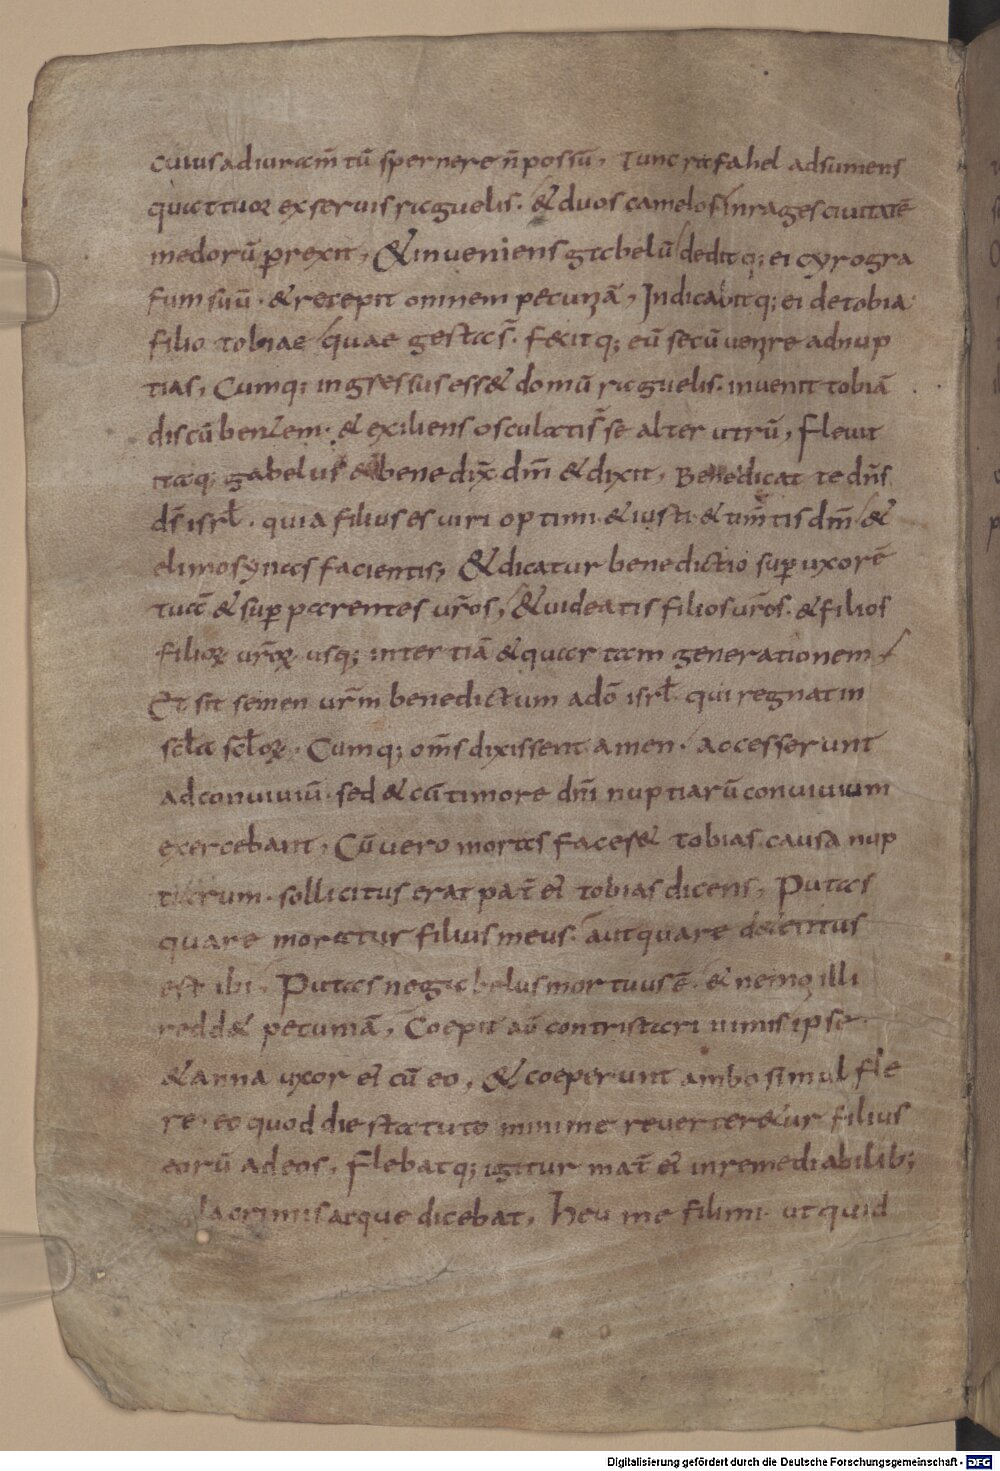 cuius adiuram̄tū spernere n̄ possū, Tunc rafahel adsumens
quattuor ex seruis raguelis. & duos camelos in rages ciuitatē
medorū prexit, & inueniens gabelū dedit q; ei cyrogra
fum suū. & recepit omnem pecuniā, Indicabitq; ei de tobia
filio tobiae quae gesta s̄. fecitq; eū secū uenire ad nup
tias, Cumq; ingressus ess& domū raguelis. inuenit tobiā
discūbentem. & exiliens osculatis̄ se alter utrū, fleuit
itaq; gabelus & benedix̄ dm̄ & dixit, Benedicat te dn̄s
ds̄ isrł. quia filius es uiri optimi & iusti & tim̄tis dm̄ &
elimosynas facientis, & dicatur benedictio sup uxorē
tuā & sup parentes ur̄os, & uideatis filios ur̄os. & filios
filioꝝ ur̄oꝝ usq; in tertiā & quartam generationem
Et sit semen ur̄m benedictum a dō isrł. qui regnat in
scła scłoꝝ. Cumq; om̄s dixissent amen. accesserunt
ad conuiuiū. sed & cū timore dn̄i nuptiarū conuiuium
exercebant, Cū uero moras faces& tobias causa nup
tiarum. sollicitus erat pat̄ ei tobias dicens, Putas
quare moratur filius meus. aut quare detentus
est ibi, Putas ne gabelus mortuus ē. & nemo illi
redd& pecuniā, Coepit aū contristari nimis ipse.
& anna uxor ei cū eo, & coeperunt ambo simul fle
re. eo quod die statuto minime reuerter&ur filius
eorū ad eos, flebatq; igitur mat̄ ei inremediabilib;
lacrimis atque dicebat, heu me fili mi. ut quid
Digitalisierung gefördert durch die Deutsche Forschungsgemeinschaft - DFG